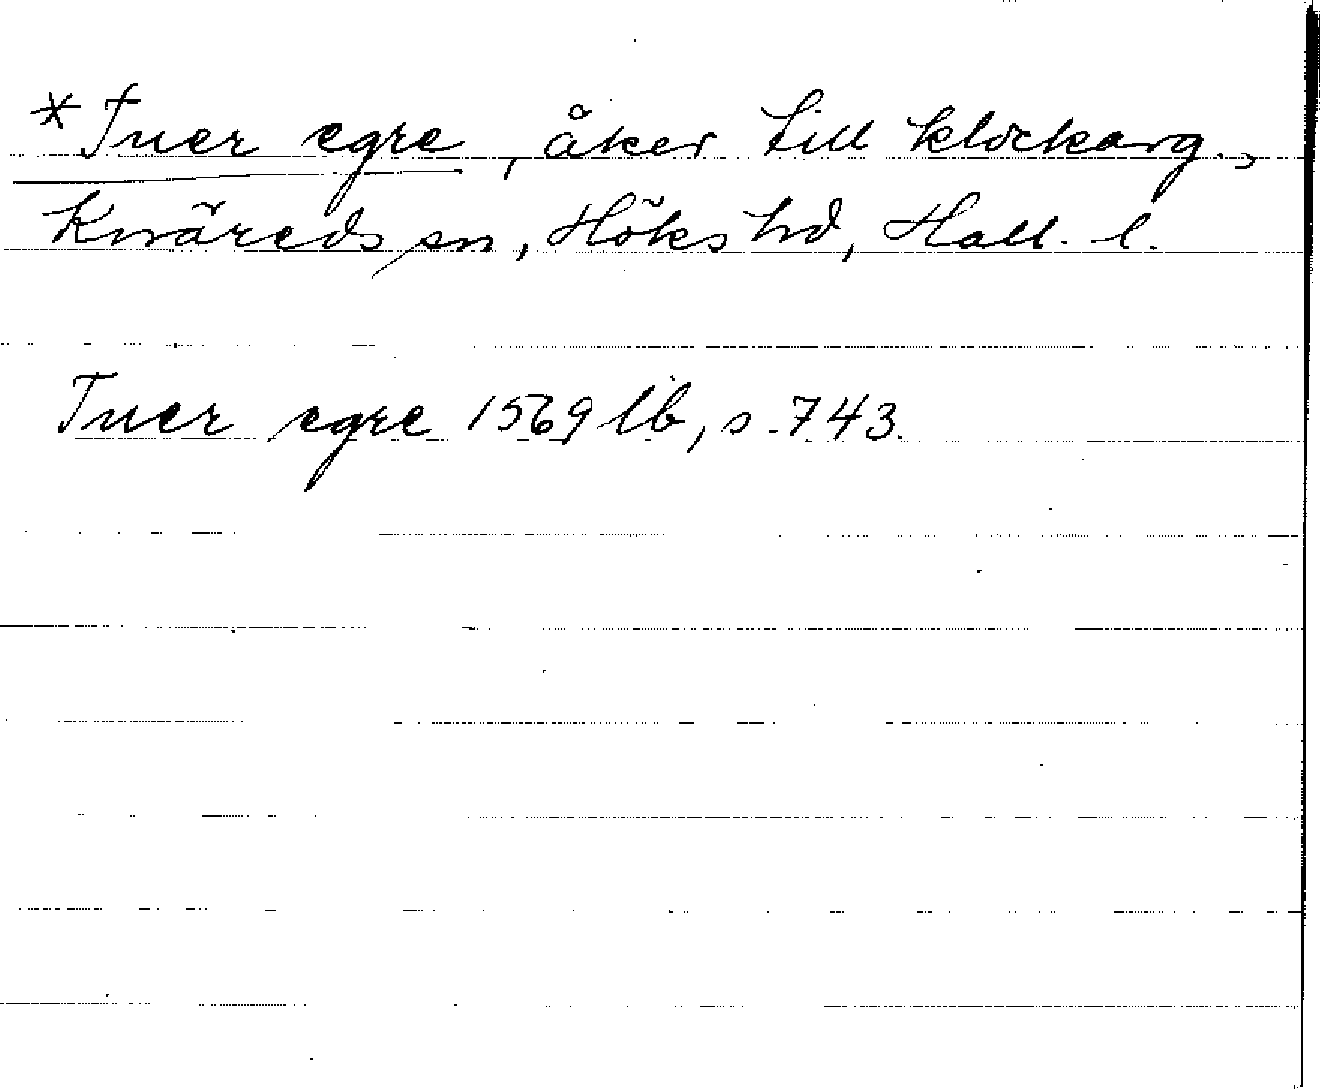 *Tuer egre, åker till klockarg.,
Knäreds sn, Höks hd, Hall. l.
Tuer egre 1569 lb, s. 743.